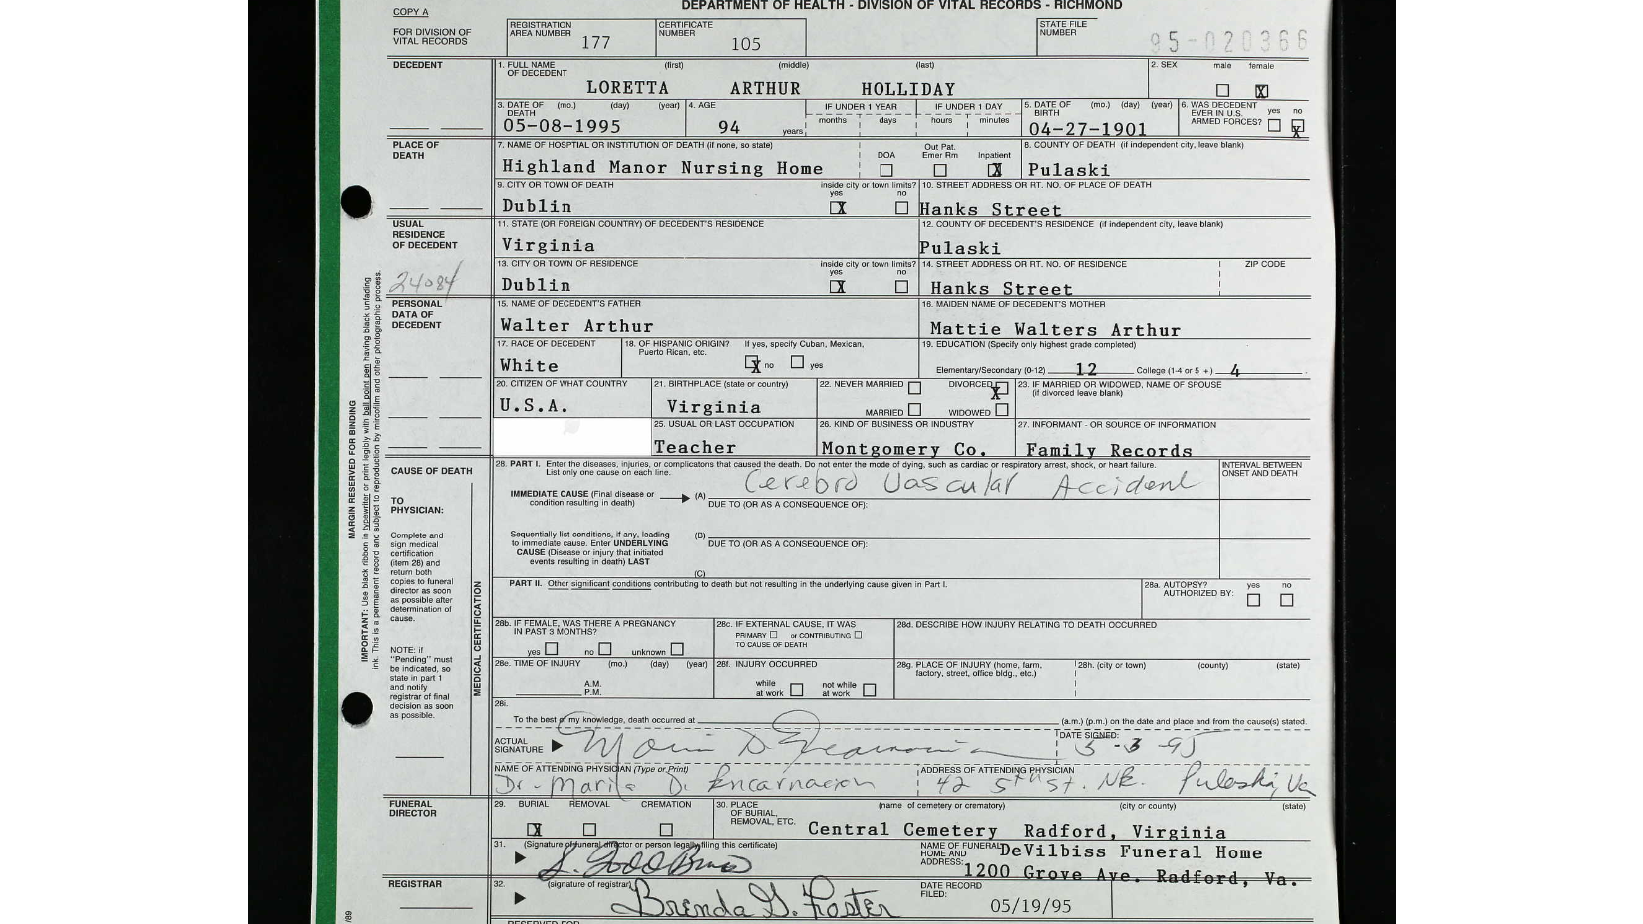 DEPARTMENT OF HEALTH - DIVISION OF VITAL RECORDS - RICHMOND
COPY A
FOR DIVISION OF VITAL RECORDS
REGISTRATION AREA NUMBER 177
CERTIFICATE NUMBER 105
STATE FILE NUMBER 95-020366
DECEDENT
1. FULL NAME OF DECEDENT (first) (middle) (last)
LORETTA ARTHUR HOLLIDAY
2. SEX male female X
3. DATE OF DEATH (mo.) (day) (year)
05-08-1995
4. AGE 94 years
IF UNDER 1 YEAR months days
IF UNDER 1 DAY hours minutes
5. DATE OF BIRTH (mo.) (day) (year)
04-27-1901
6. WAS DECEDENT EVER IN U.S. ARMED FORCES? yes no X
PLACE OF DEATH
7. NAME OF HOSPTIAL OR INSTITUTION OF DEATH (if none, so state)
Highland Manor Nursing Home
DOA Out Pat. Emer Rm Inpatient X
8. COUNTY OF DEATH (if independent city, leave blank)
Pulaski
9. CITY OR TOWN OF DEATH
Dublin
inside city or town limits? yes X no
10. STREET ADDRESS OR RT. NO. OF PLACE OF DEATH
Hanks Street
USUAL RESIDENCE OF DECEDENT
11. STATE (OR FOREIGN COUNTRY) OF DECEDENT'S RESIDENCE
Virginia
12. COUNTY OF DECEDENT'S RESIDENCE (if independent city, leave blank)
Pulaski
24084
13. CITY OR TOWN OF RESIDENCE
Dublin
inside city or town limits? yes X no
14. STREET ADDRESS OR RT. NO. OF RESIDENCE ZIP CODE
Hanks Street
PERSONAL DATA OF DECEDENT
15. NAME OF DECEDENT'S FATHER
Walter Arthur
16. MAIDEN NAME OF DECEDENT'S MOTHER
Mattie Walters Arthur
17. RACE OF DECEDENT
White
18. OF HISPANIC ORIGIN? If yes, specify Cuban, Mexican, Puerto Rican, etc.
X no yes
19. EDUCATION (Specify only highest grade completed)
Elementary/Secondary (0-12) 12 College (1-4 or 5 +) 4
20. CITIZEN OF WHAT COUNTRY
U.S.A.
21. BIRTHPLACE (state or country)
Virginia
22. NEVER MARRIED DIVORCED X
MARRIED WIDOWED
23. IF MARRIED OR WIDOWED, NAME OF SPOUSE (if divorced leave blank)
25. USUAL OR LAST OCCUPATION
Teacher
26. KIND OF BUSINESS OR INDUSTRY
Montgomery Co.
27. INFORMANT - OR SOURCE OF INFORMATION
Family Records
MARGIN RESERVED FOR BINDING
IMPORTANT: Use black ribbon in typewriter or print legibly with ball point pen having black unfading
ink. This is a permanent record and subject to reproduction by mircofilm and other photographic process.
CAUSE OF DEATH
TO PHYSICIAN:
Complete and sign medical certification (item 28) and return both copies to funeral director as soon as possible after determination of cause.
NOTE: if "Pending" must be indicated, so state in part 1 and notify registrar of final decision as soon as possible.
MEDICAL CERTIFICATION
28. PART I. Enter the diseases, injuries, or complicatons that caused the death. Do not enter the mode of dying, such as cardiac or respiratory arrest, shock, or heart failure.
List only one cause on each line.
INTERVAL BETWEEN ONSET AND DEATH
IMMEDIATE CAUSE (Final disease or condition resulting in death) (A) Cerebro Vascular Accident
DUE TO (OR AS A CONSEQUENCE OF):
Sequentially list conditions, if any, leading to immediate cause. Enter UNDERLYING CAUSE (Disease or injury that initiated events resulting in death) LAST
DUE TO (OR AS A CONSEQUENCE OF):
(C)
PART II. Other significant conditions contributing to death but not resulting in the underlying cause given in Part I.
28a. AUTOPSY? AUTHORIZED BY: yes no
28b. IF FEMALE, WAS THERE A PREGNANCY IN PAST 3 MONTHS?
yes no unknown
28c. IF EXTERNAL CAUSE, IT WAS
PRIMARY or CONTRIBUTING
TO CAUSE OF DEATH
28d. DESCRIBE HOW INJURY RELATING TO DEATH OCCURRED
28e. TIME OF INJURY (mo.) (day) (year)
A.M.
P.M.
28f. INJURY OCCURRED
while at work not while at work
28g. PLACE OF INJURY (home, farm, factory, street, office bldg., etc.)
28h. (city or town) (county) (state)
28i.
To the best of my knowledge, death occurred at (a.m.) (p.m.) on the date and place and from the cause(s) stated.
ACTUAL SIGNATURE
DATE SIGNED:
NAME OF ATTENDING PHYSICIAN (Type or Print)
Dr. D. Encarnacion
ADDRESS OF ATTENDING PHYSICIAN
42 5th St. NE. Pulaski, Va
FUNERAL DIRECTOR
29. BURIAL X REMOVAL CREMATION
30. PLACE OF BURIAL, REMOVAL, ETC. (name of cemetery or crematory) (city or county) (state)
Central Cemetery Radford, Virginia
31. (Signature of funeral director or person legally filing this certificate)
NAME OF FUNERAL HOME AND ADDRESS:
DeVilbiss Funeral Home
1200 Grove Ave. Radford, Va.
REGISTRAR
32. (signature of registrar)
Brenda G. Foster
DATE RECORD FILED:
05/19/95
/89